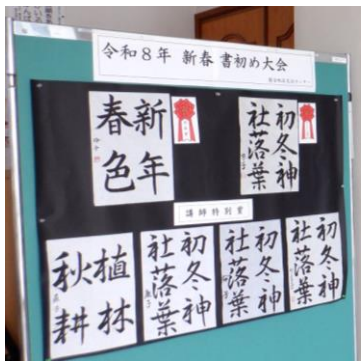 令和8年 新春 書初め大会
新年
春色
初冬神
社落葉
講師特別賞
植林
秋耕
初冬神
社落葉
初冬神
社落葉
初冬神
社落葉